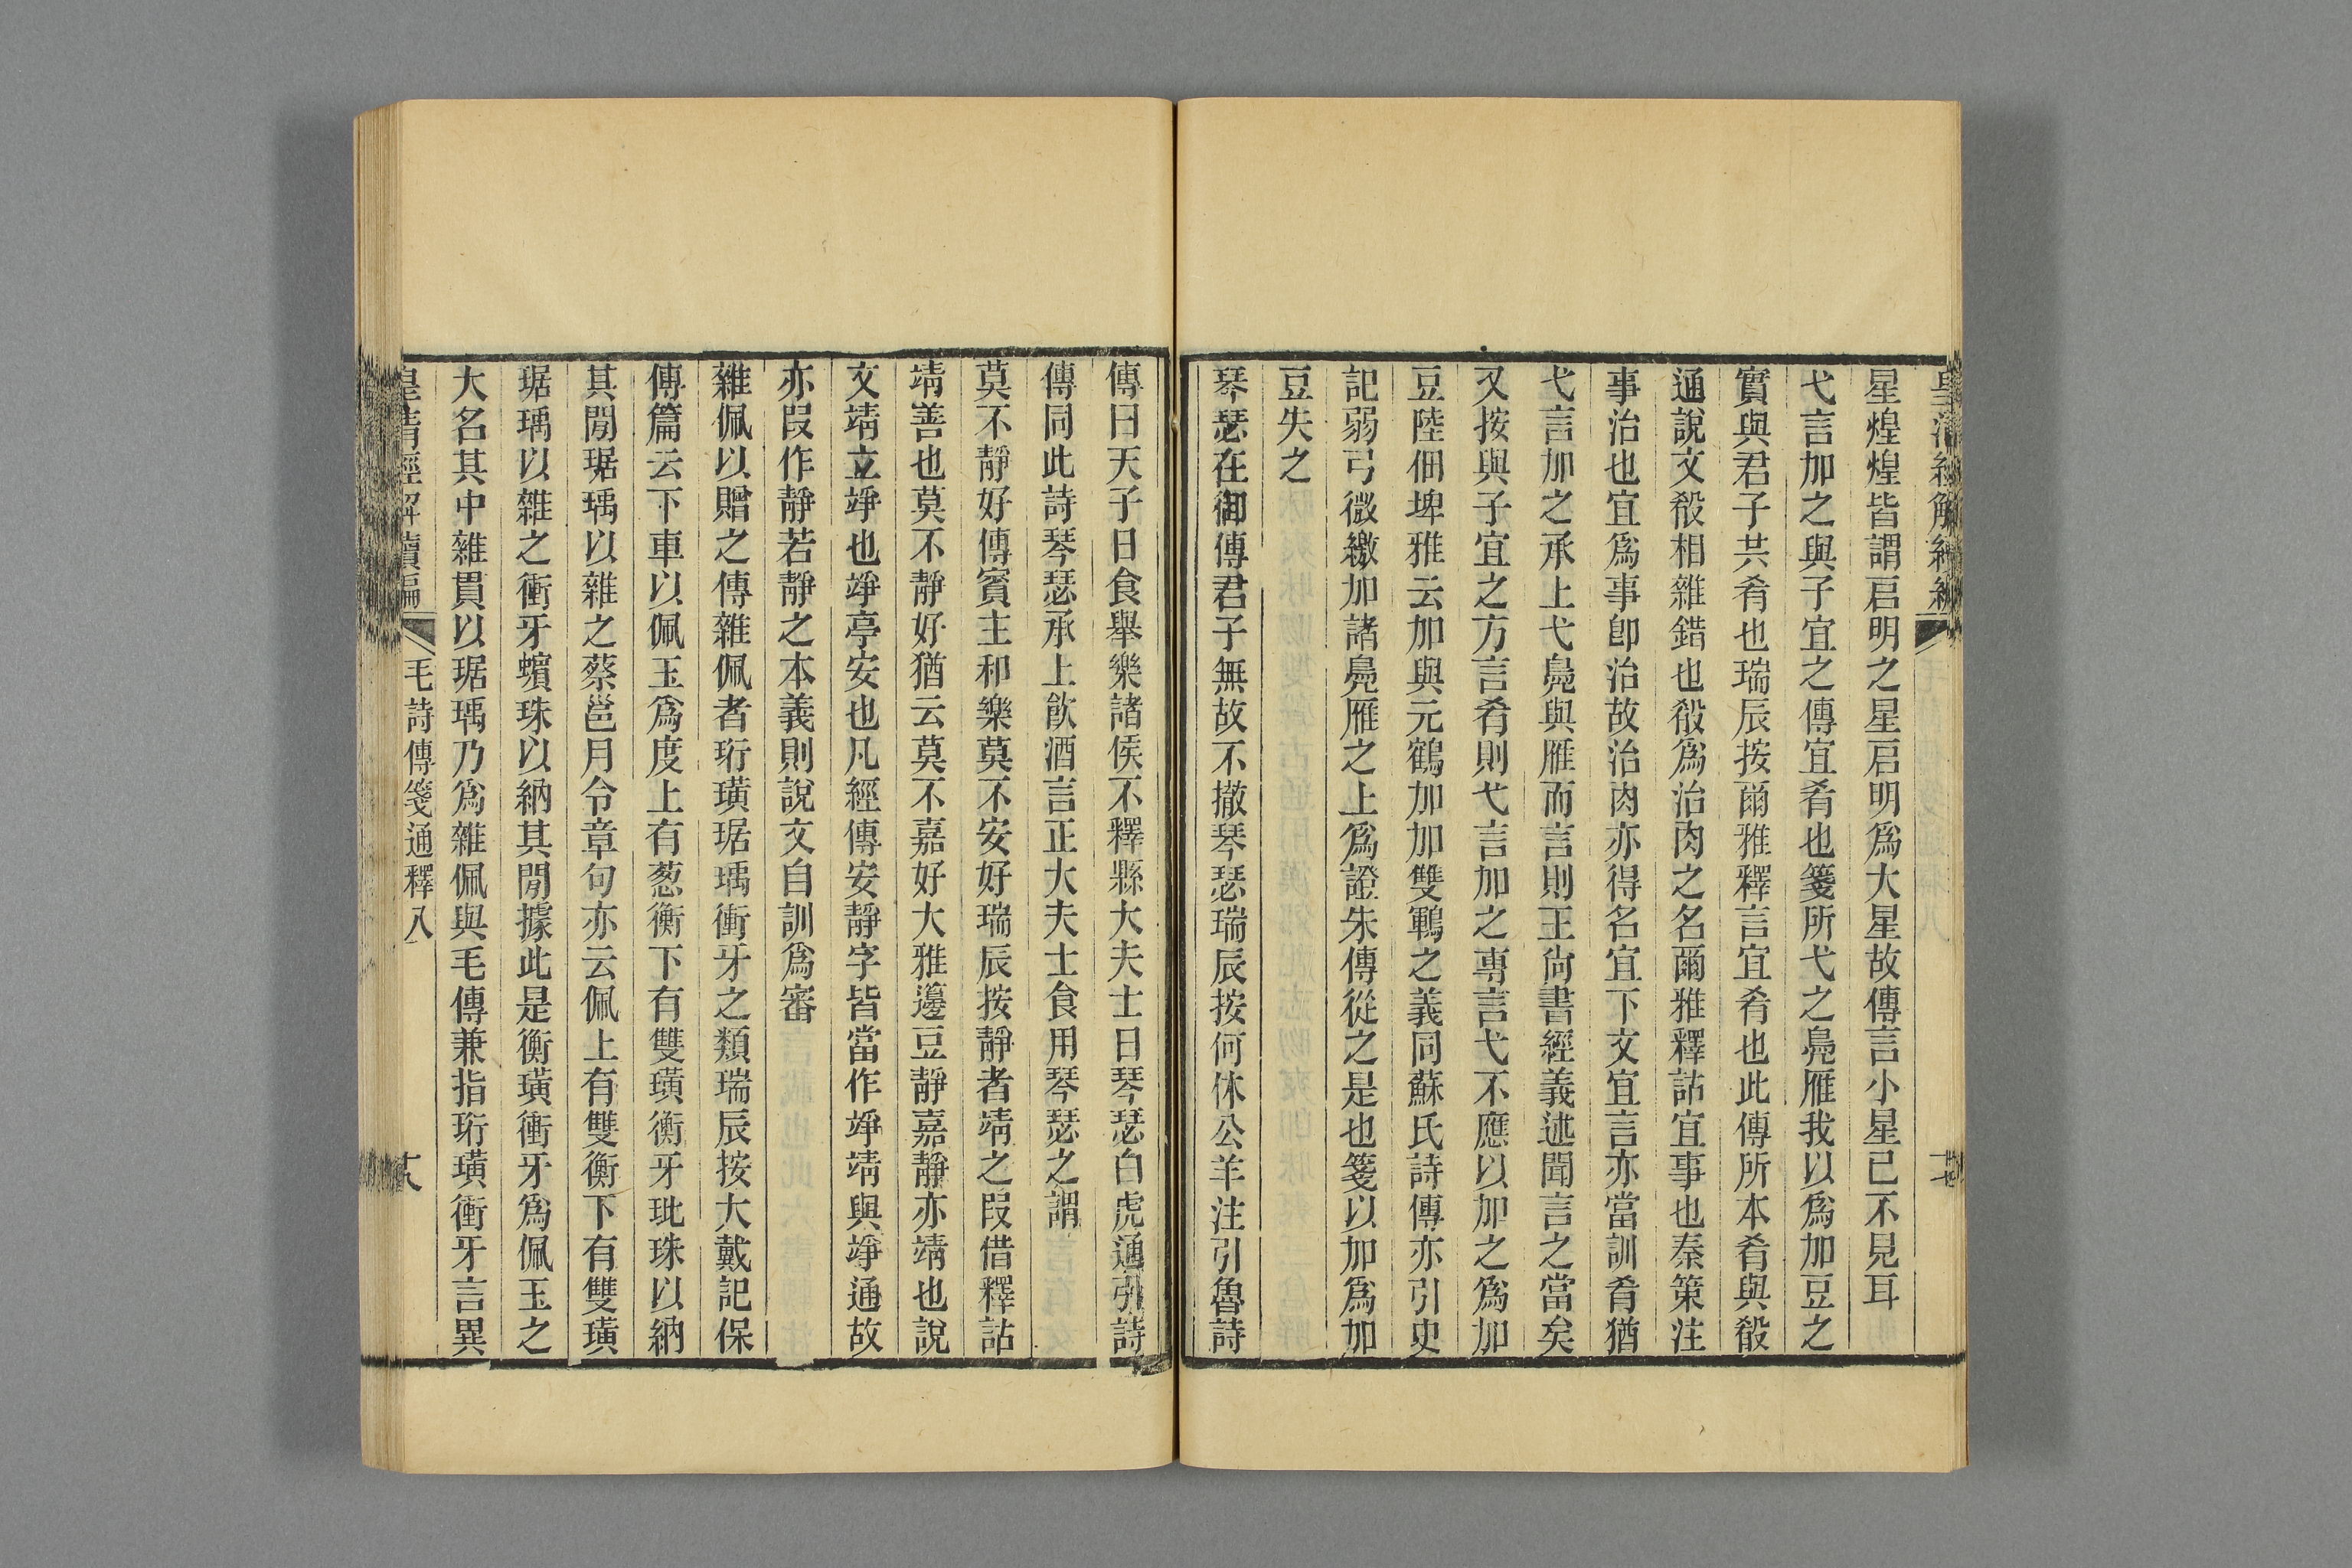 星煌煌皆謂启明之星启明爲大星故傳言小星已不見耳
弋言加之與子宜之傳宜肴也箋所弋之鳧雁我以爲加豆之
實與君子共肴也瑞辰按爾雅釋言宜肴也此傳所本肴與殽
通說文殽相雜錯也殽爲治肉之名爾雅釋詁宜事也秦策注
事治也宜爲事卽治故治肉亦得名宜下文宜言亦當訓肴猶
弋言加之承上弋鳧與雁而言則王尙書經義述聞言之當矣
又按與子宜之方言肴則弋言加之專言弋不應以加之爲加
豆陸佃埤雅云加與元鶴加加雙鶤之義同蘇氏詩傳亦引史
記弱弓微繳加諸鳧雁之上爲證朱傳從之是也箋以加爲加
豆失之
琴瑟在御傳君子無故不撤琴瑟瑞辰按何休公羊注引魯詩
傳曰天子日食舉樂諸侯不釋縣大夫士日琴瑟白虎通引詩
傳同此詩琴瑟承上飮酒言正大夫士食用琴瑟之謂
莫不靜好傳賓主和樂莫不安好瑞辰按靜者靖之叚借釋詁
靖善也莫不靜好猶云莫不嘉好大雅籩豆靜嘉靜亦靖也說
文靖立竫也竫亭安也凡經傳安靜字皆當作竫靖與竫通故
亦叚作靜若靜之本義則說文自訓爲審
雜佩以贈之傳雜佩者珩璜琚瑀衝牙之類瑞辰按大戴記保
傅篇云下車以佩玉爲度上有葱衡下有雙璜衡牙玭珠以納
其閒琚瑀以雜之蔡邕月令章句亦云佩上有雙衡下有雙璜
琚瑀以雜之衝牙蠙珠以納其閒據此是衡璜衝牙爲佩玉之
大名其中雜貫以琚瑀乃爲雜佩與毛傳兼指珩璜衝牙言異
皇清經解續編 毛詩傳箋通釋八 十八